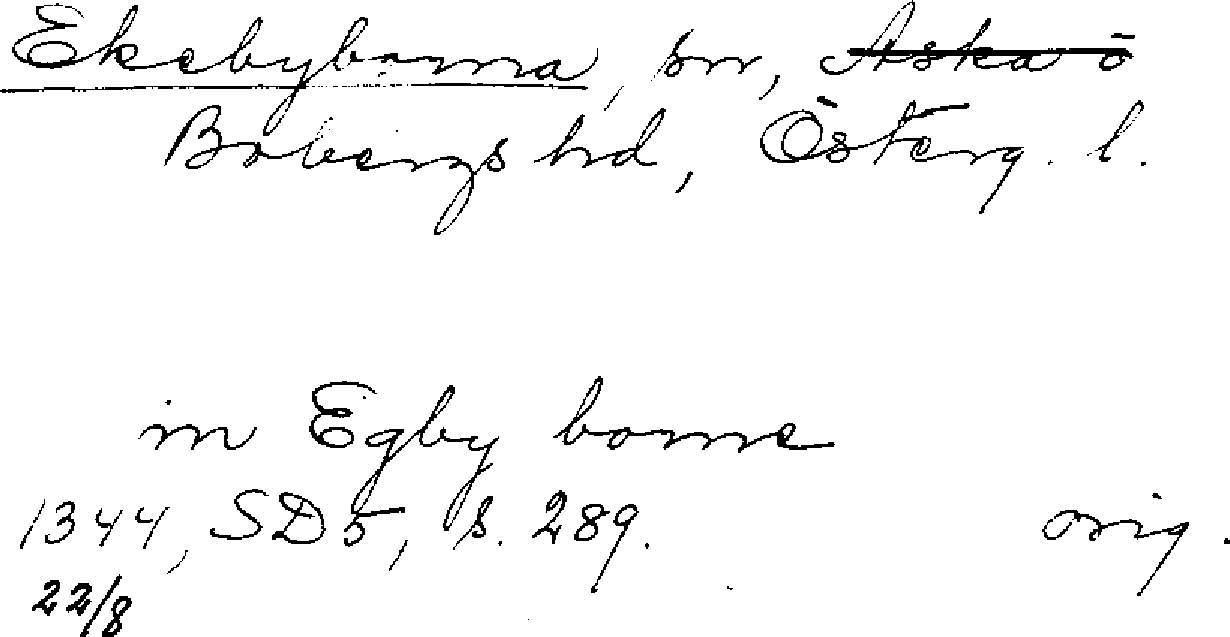 Ekebyborna, sn, Aska o
Bobergs hd, Österg. l.
in Egby borne
1344, SD 5, s. 289. orig.
22/8